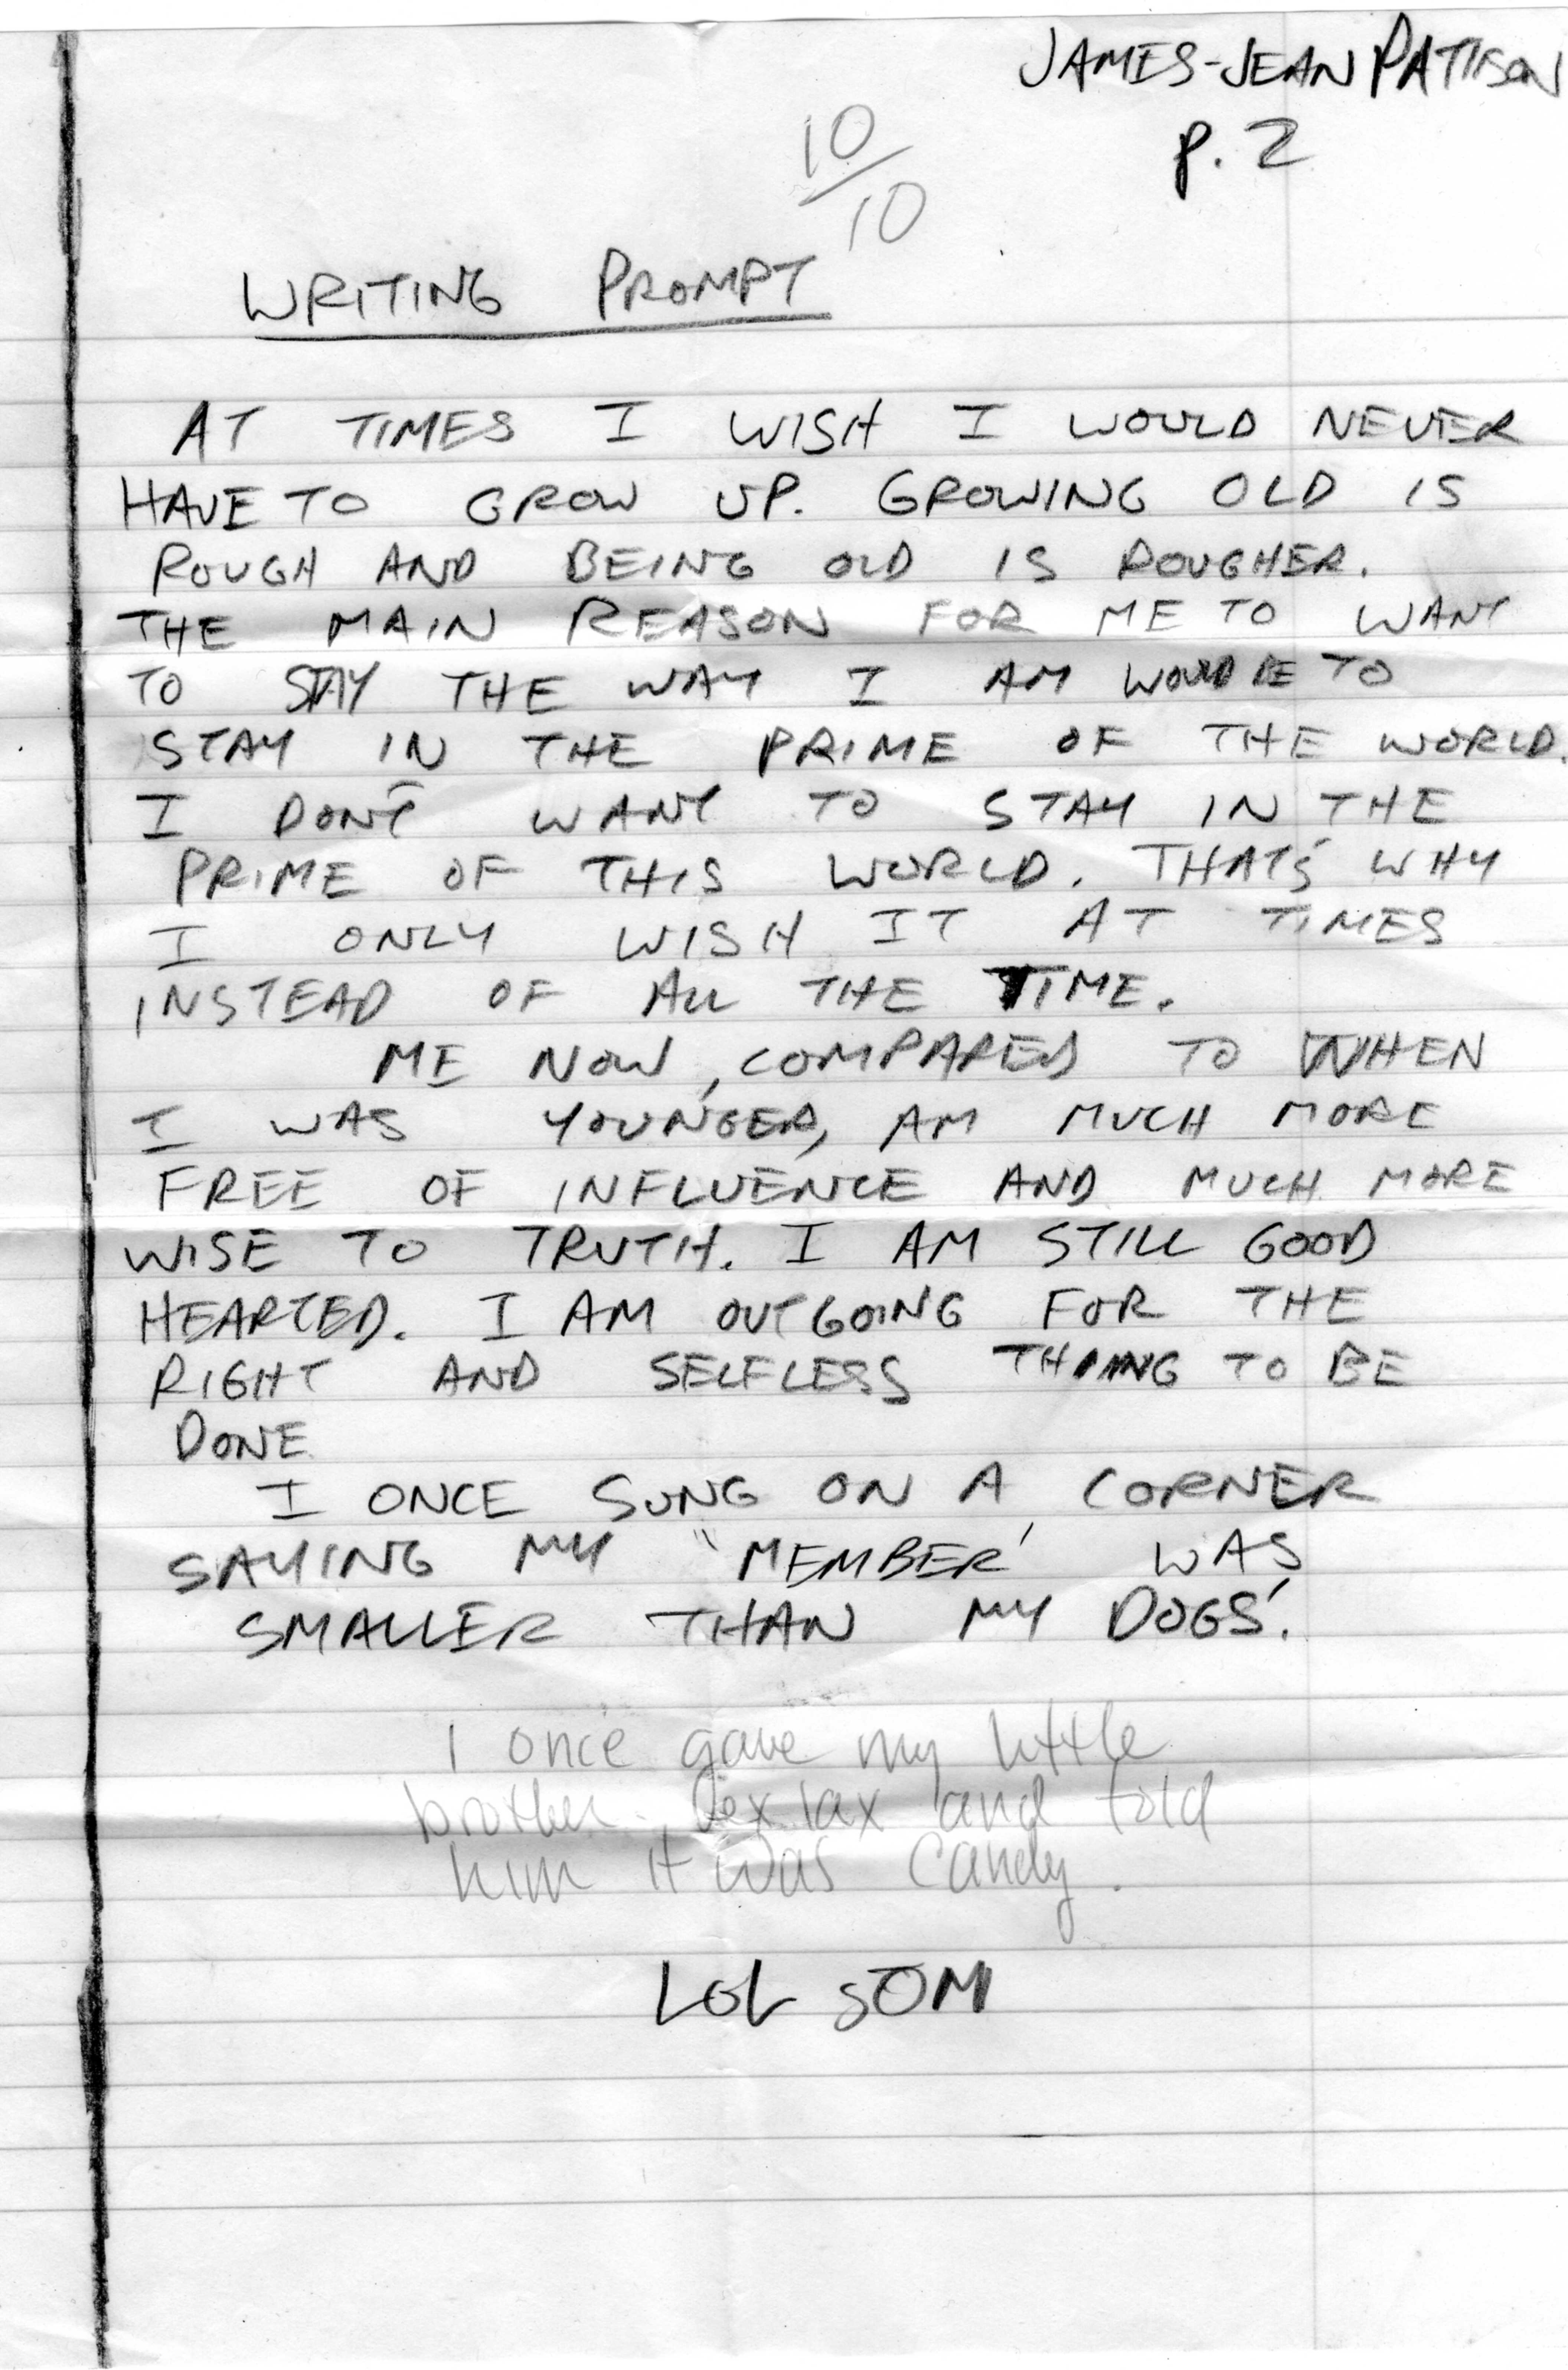 JAMES-JEAN PATTISON
p. 2
10/10
WRITING PROMPT
AT TIMES I WISH I WOULD NEVER
HAVE TO GROW UP. GROWING OLD IS
ROUGH AND BEING OLD IS ROUGHER.
THE MAIN REASON FOR ME TO WANT
TO STAY THE WAY I AM WOULD BE TO
STAY IN THE PRIME OF THE WORLD.
I DON'T WANT TO STAY IN THE
PRIME OF THIS WORLD. THAT'S WHY
I ONLY WISH IT AT TIMES
INSTEAD OF ALL THE TIME.
ME NOW, COMPARED TO WHEN
I WAS YOUNGER, AM MUCH MORE
FREE OF INFLUENCE AND MUCH MORE
WISE TO TRUTH. I AM STILL GOOD
HEARTED. I AM OUTGOING FOR THE
RIGHT AND SELFLESS THING TO BE
DONE
I ONCE SUNG ON A CORNER
SAYING MY "MEMBER' WAS
SMALLER THAN MY DOGS'.
I once gave my little
brother lax and told
him it was candy.
LOL SOM